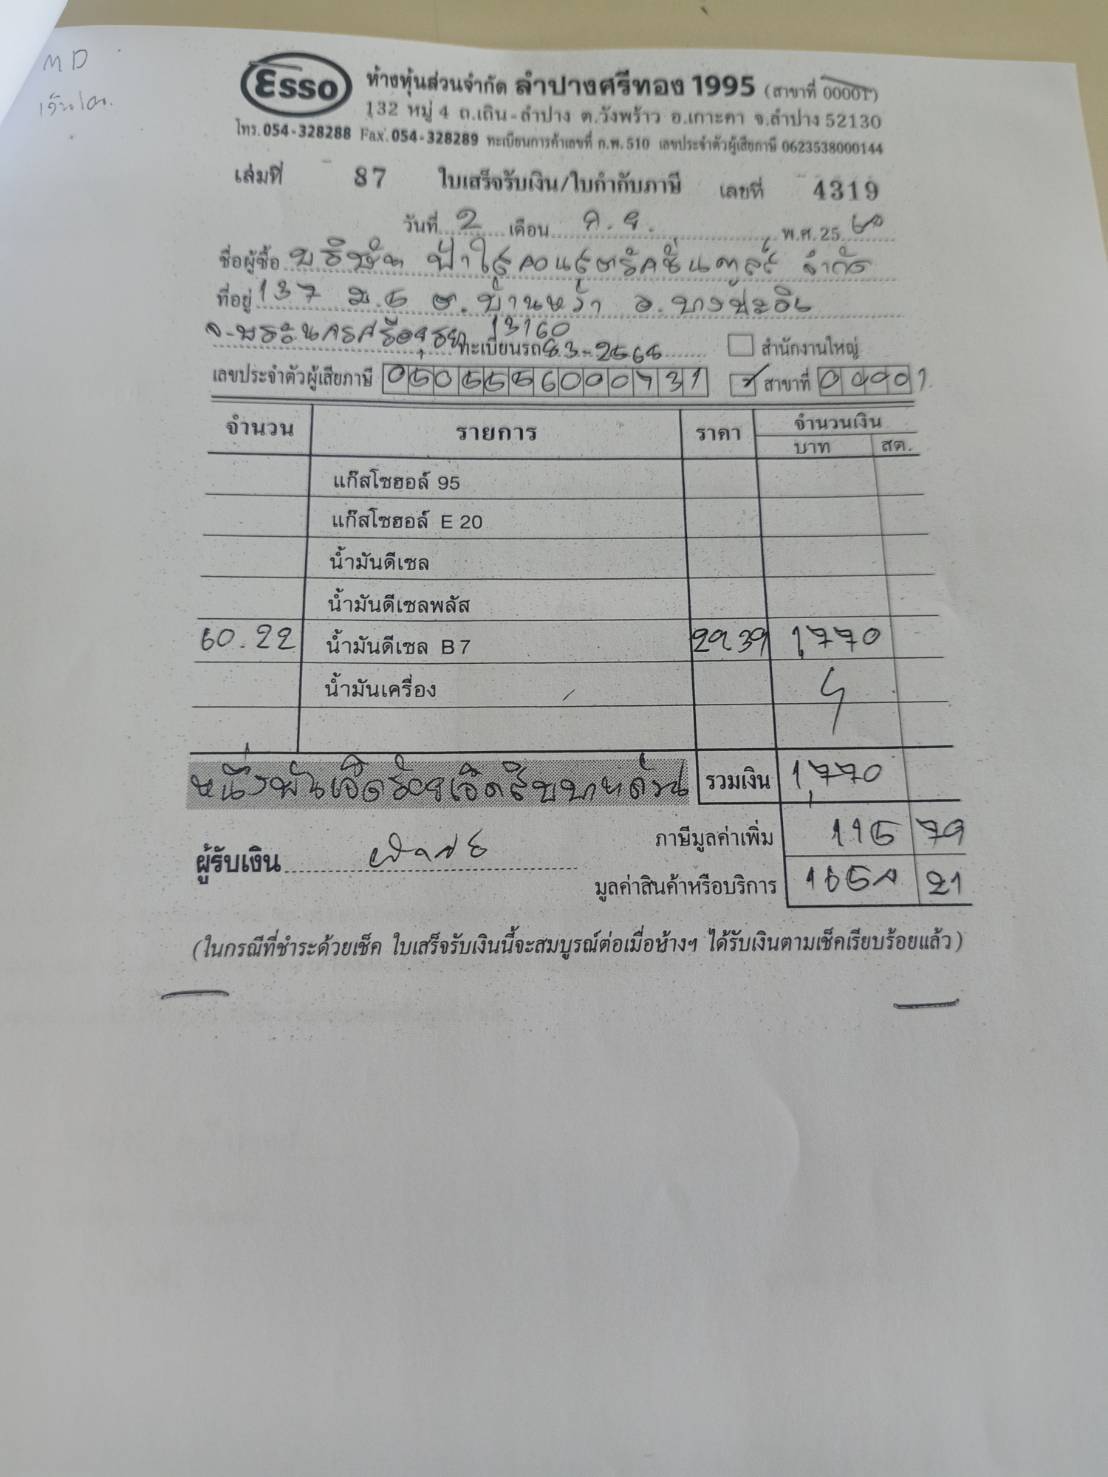 MD
Esso ห้างหุ้นส่วนจำกัด ลำปางศรีทอง 1995 (สาขาที่ 00001)
132 หมู่ 4 ถ.เถิน-ลำปาง ต.วังพร้าว อ.เกาะคา จ.ลำปาง 52130
โทร. 054-328288 Fax. 054-328289 ทะเบียนการค้าเลขที่ ก.พ. 510 เลขประจำตัวผู้เสียภาษี 0623538000144
เล่มที่ 87 ใบเสร็จรับเงิน/ใบกำกับภาษี เลขที่ 4319
วันที่ 2 เดือน ก.ย. พ.ศ. 25
ชื่อผู้ซื้อ บริษัท ฟ้าใสคอนสตรัคชั่นทูลส์ จำกัด
ที่อยู่ 137 ม.5 ต.บ้านหว้า อ.บางปะอิน
จ.พระนครศรีอยุธยา 13160
ทะเบียนรถ 83-2565 สำนักงานใหญ่
เลขประจำตัวผู้เสียภาษี 0505556000731 สาขาที่ 00001
จำนวน รายการ ราคา จำนวนเงิน
บาท สต.
แก๊สโซฮอล์ 95
แก๊สโซฮอล์ E 20
น้ำมันดีเซล
น้ำมันดีเซลพลัส
60.22 น้ำมันดีเซล B7 29.39 1,770
น้ำมันเครื่อง
หนึ่งพันเจ็ดร้อยเจ็ดสิบบาทถ้วน รวมเงิน 1,770
ภาษีมูลค่าเพิ่ม 115 79
ผู้รับเงิน
มูลค่าสินค้าหรือบริการ 1654 21
(ในกรณีที่ชำระด้วยเช็ค ใบเสร็จรับเงินนี้จะสมบูรณ์ต่อเมื่อห้างฯ ได้รับเงินตามเช็คเรียบร้อยแล้ว)